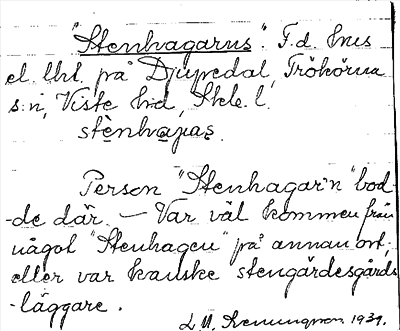 "Stenhagarns". F.d. hus
el. lht. på Djupedal, Trökörna
s:n, Viste hd, Skbl. l.
stènha̱pas.
Person "Stenhagar'n" bod-
-de där. — Var väl kommen från
något "Stenhagen" på annan ort,
eller var kanske stengärdesgårds-
-läggare.
1939.